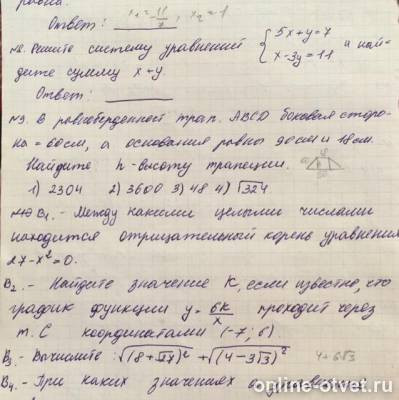 Ответ: x₁=11/7, x₂=1
№8. Решите систему уравнений { 5x+y=7 и най-
x-3y=11
дите сумму x+y.
Ответ:
№9. В равнобедренной трап. ABCD боковая сторо-
на = 60см, а основания равны 90см и 18см.
Найдите h-высоту трапеции.
1) 2304 2) 3600 3) 48 4) √324
B₁. - Между какими целыми числами
находится отрицательный корень уравнения
27-x²=0.
B₂. - Найдите значение K, если известно, что
график функции y=6k/x проходит через
т. С координатами (-7; 6).
B₃. - Вычислите: √(8+√27)² + √(4-3√3)² 4+6√3
B₄. - При каких значениях a уравнение
online-otvet.ru